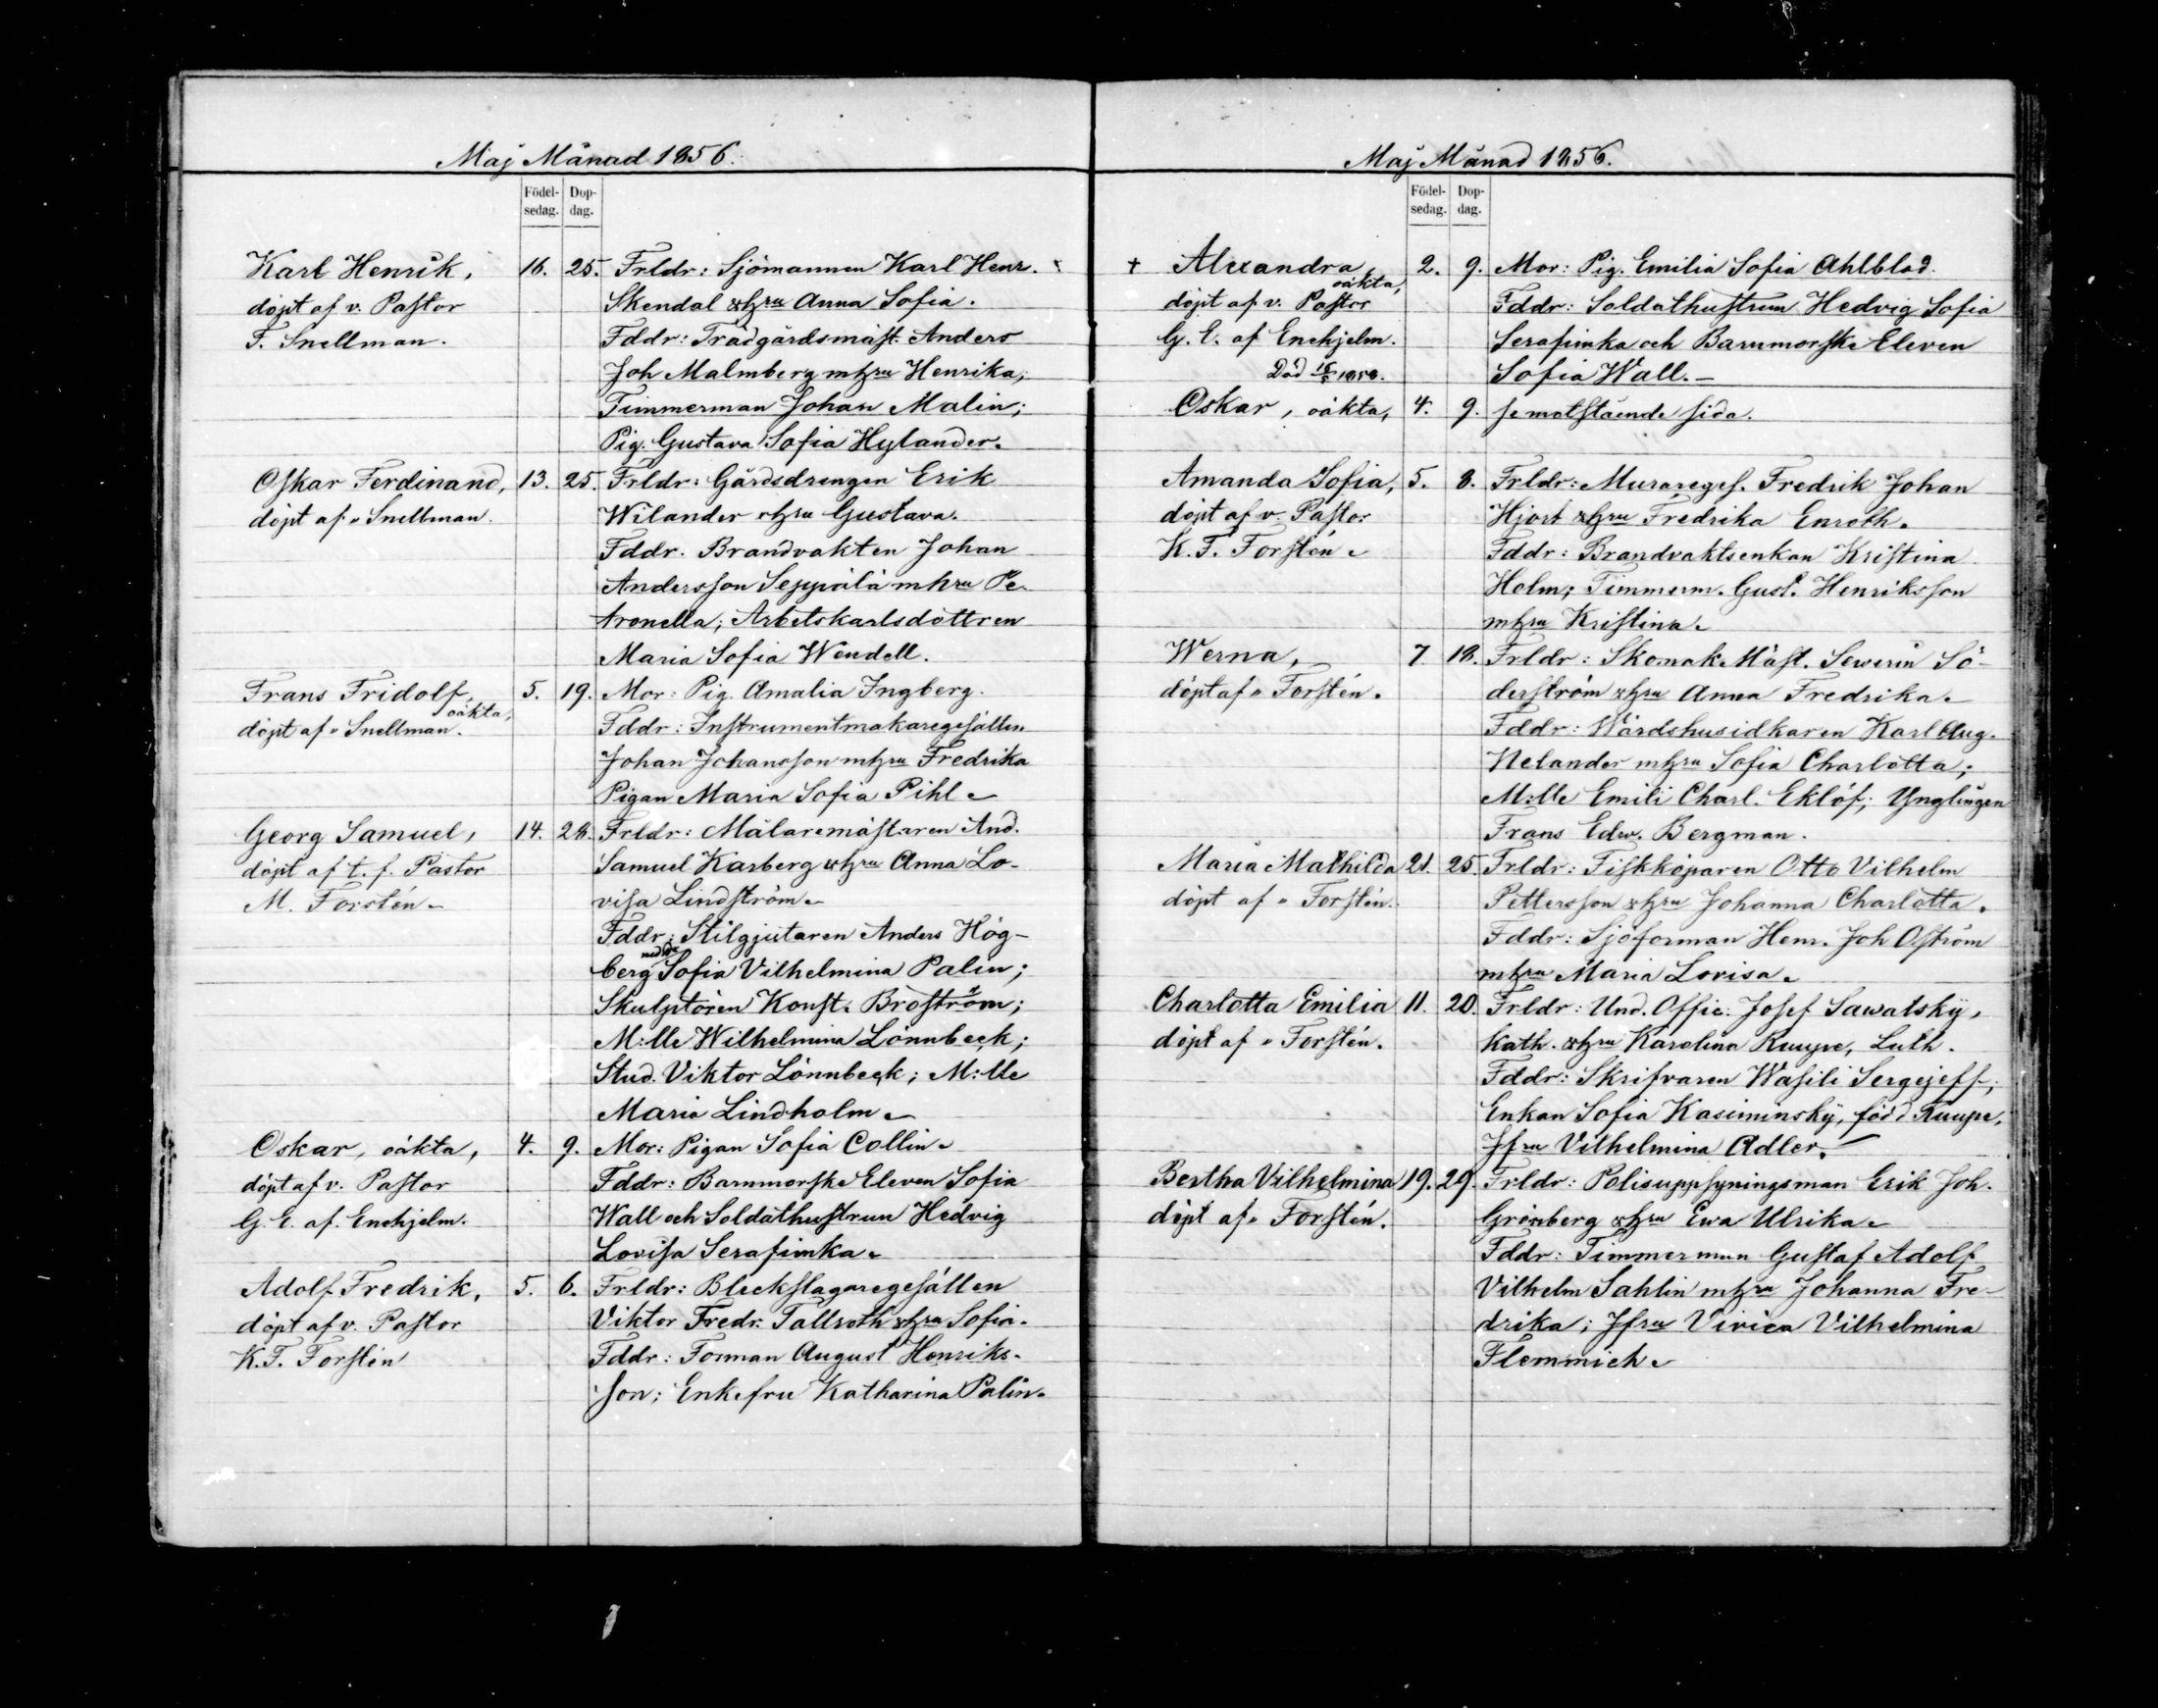 Maj Månad 1856.
Födel- Dop-
sedag. dag.
Karl Henrik, 16. 25. Frldr: Sjömannen Karl Henr.
döpt af v. Pastor Skendal o hru Anna Sofia.
F. Snellman. Fddr: Trädgårdsmäst. Anders
Joh Malmberg m hru Henrika;
Timmerman Johan Malin;
Pig. Gustava Sofia Hylander.
Oskar Ferdinand, 13. 25. Frldr: Gårdsdrengen Erik
döpt af " Snellman. Wilander o hru Gustava.
Fddr. Brandvakten Johan
Andersson Seppälä m hru Pe-
tronella; Arbetskarlsdottren
Maria Sofia Wendell.
Frans Fridolf, oäkta, 5. 19. Mor: Pig. Amalia Ingberg.
döpt af " Snellman. Fddr: Instrumentmakaregesällen
Johan Johansson m hru Fredrika
Pigan Maria Sofia Pihl.
Georg Samuel, 14. 28. Frldr: Målaremästaren And.
döpt af t. f. Pastor Samuel Karberg o hru Anna Lo-
M. Forstén. visa Lindström.
Fddr: Stilgjutaren Anders Hög-
berg Sofia Vilhelmina Palin;
Skulptören Konst. Broström;
M:lle Wilhelmina Lönnbeck;
Stud. Viktor Lönnbeck; M:lle
Maria Lindholm.
Oskar, oäkta, 4. 9. Mor: Pigan Sofia Collin.
döpt af v. Pastor Fddr: Barnmorske Eleven Sofia
G. E. af. Enehjelm. Wall och Soldathustrun Hedvig
Lovisa Serafimka.
Adolf Fredrik, 5. 6. Frldr: Bleckslagaregesällen
döpt af v. Pastor Viktor Fredr. Tallroth o hru Sofia.
K. F. Forstén Fddr: Forman August Henriks-
son; Enkefru Katharina Palin.
Maj Månad 1856.
Födel- Dop-
sedag. dag.
+ Alexandra, oäkta, 2. 9. Mor: Pig. Emilia Sofia Ahlblad.
döpt af v. Pastor Fddr: Soldathustrun Hedvig Sofia
G. E. af Enehjelm. Serafimka och Barnmorske Eleven
Död 16/5 1856. Sofia Wall.-
Oskar, oäkta, 4. 9. se motstående sida.
Amanda Sofia, 5. 8. Frldr: Murareges. Fredrik Johan
döpt af v. Pastor Hjort o hru Fredrika Enroth.
K. F. Forstén. Fddr: Brandvaktsenkan Kristina
Holm; Timmerm. Gust. Henriksson
m hru Kristina.
Werna, 7. 18. Frldr: Skomak. Mäst. Sewerin Sö-
döpt af " Forstén. derström o hru Anna Fredrika.
Fddr: Wärdshusidkaren Karl Aug.
Helander m hru Sofia Charlotta;
M:lle Emili Charl. Eklöf; Ynglingen
Frans Edw. Bergman.
Maria Mathilda 21. 25. Frldr: Fiskköparen Otto Vilhelm
döpt af " Forstén. Pettersson o hru Johanna Charlotta.
Fddr: Sjöforman Henr. Joh Öström
m hru Maria Lovisa.
Charlotta Emilia 11. 20. Frldr: Und. Offic. Josef Sawatsky,
döpt af " Forstén. kath. o hru Karolina Ruupe, Luth.
Fddr: Skrifvaren Wasili Sergejeff;
Enkan Sofia Kasiminsky, född Ruupe,
Jfru Vilhelmina Adler.
Bertha Vilhelmina 19. 29. Frldr: Polisuppsyningsman Erik Joh.
döpt af " Forstén. Grönberg o hru Ewa Ulrika.
Fddr: Timmerman Gustaf Adolf
Vilhelm Sahlin m hru Johanna Fre-
drika; Jfru Vivica Vilhelmina
Flemmich.